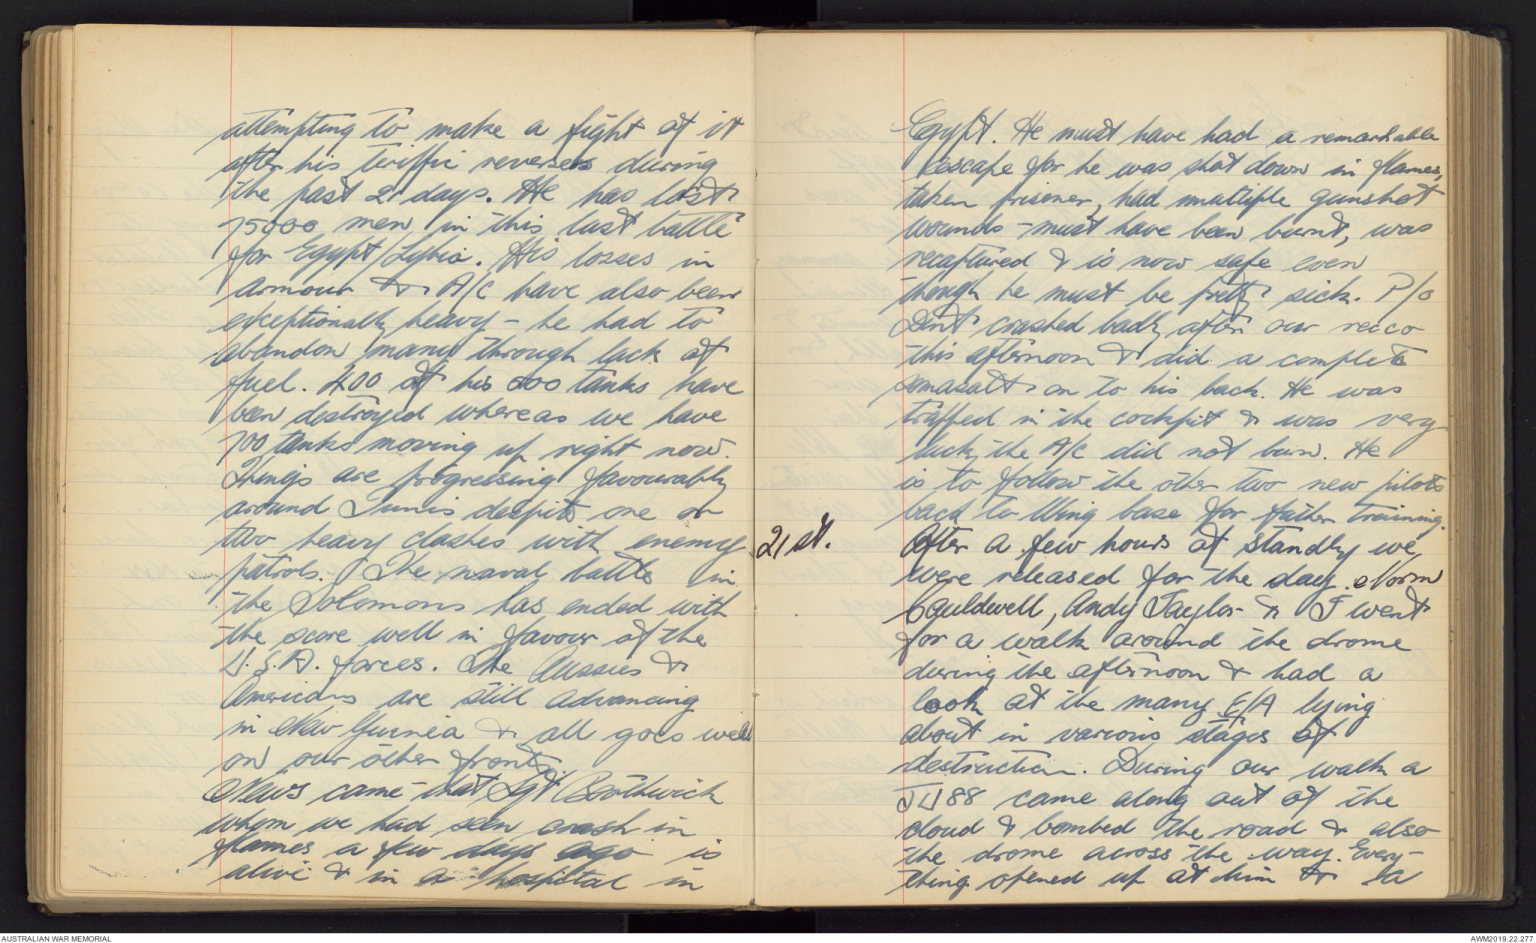 attempting to make a fight of it
after his teriffic reverses during
the past 21 days. He has lost
75000 men in this last battle
for Egypt/Lybia. His losses in
armour & A/c have also been
exceptionally heavy - he had to
abandon many through lack of
fuel. 400 of his 600 tanks have
been destroyed whereas we have
700 tanks moving up right now.
Things are progressing favourably
around Tunis despite one or
two heavy clashes with enemy
patrols. The naval battle in
the Solomons has ended with
the score well in favour of the
U.S.A. forces. The Aussies &
Americans are still advancing
in New Guinea & all goes well
on our other fronts.
News came that Sgt Borthwick
whom we had seen crash in
flames a few days ago is
alive & in a hospital in
Egypt. He must have had a remarkable
escape for he was shot down in flames,
taken prisoner, had multiple gunshot
wounds - must have been burnt, was
recaptured & is now safe even
though he must be pretty sick. P/o
Dent crashed badly after our recco
this afternoon & did a complete
somasalt on to his back. He was
trapped in the cockpit & was very
lucky the A/c did not burn. He
is to follow the other two new pilots
back to Wing base for futher training.
21st. After a few hours of standby we
were released for the day. Norm
Cauldwell, Andy Taylor & I went
for a walk around the drome
during the afternoon & had a
look at the many E/A lying
about in various stages of
destruction. During our walk a
JU88 came along out of the
cloud & bombed the road & also
the drome across the way. Every-
thing opened up at him & a
AUSTRALIAN WAR MEMORIAL
AWM2019.22.277